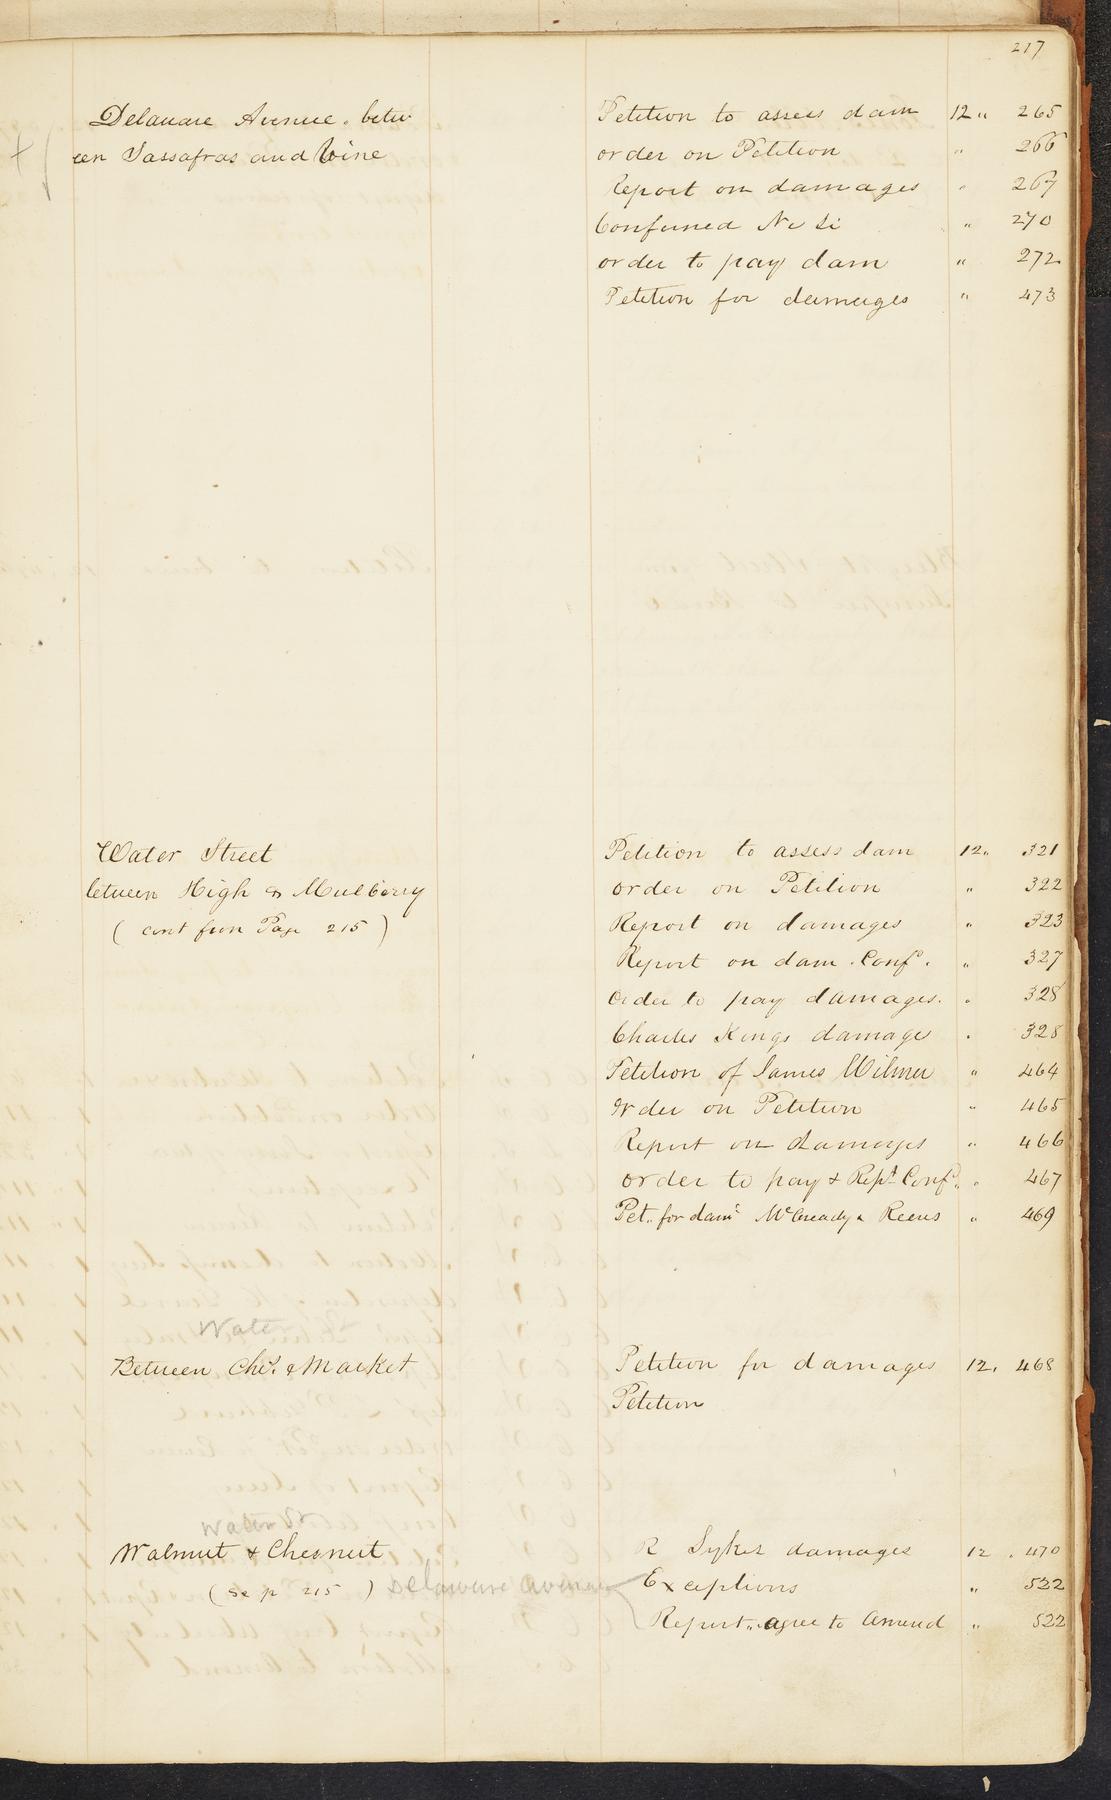 217
Delaware Avenue. betw Petition to assess dam 12 " 265
een Sassafras and Vine order on Petition " 266
Report on damages " 267
Confirmed Ni Si " 270
order to pay dam " 272
Petition for damages " 473
Water Street Petition to assess dam 12 " 321
between High & Mulberry order on Petition " 322
( cont from Page 215 ) Report on damages " 323
Report on dam. Confd. " 327
Order to pay damages. " 328
Charles Kings damage " 328
Petition of James Wilmer " 464
Order on Petition " 465
Report on damages " 466
order to pay & Rept Confd. " 467
Pet. for dams McCready & Reeves " 469
Water
Between Chs. & Market Petition for damages 12. 468
Petition
Water St
Walnut & Chesnut R Sykes damages 12 . 470
( Se p 215 ) Delaware Avenue Exceptions " 522
Report " agree to amend " 522